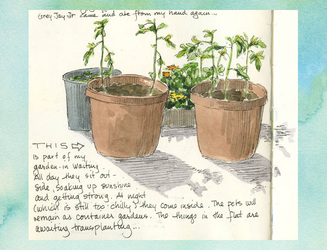 Grey Jay Jr came and ate from my hand again...
THIS
is part of my
garden-in waiting.
All day they sit out-
side, soaking up sunshine
and getting strong. At night
(which is still too chilly) they come inside. The pots will
remain as container gardens. The things in the flat are
awaiting transplanting...